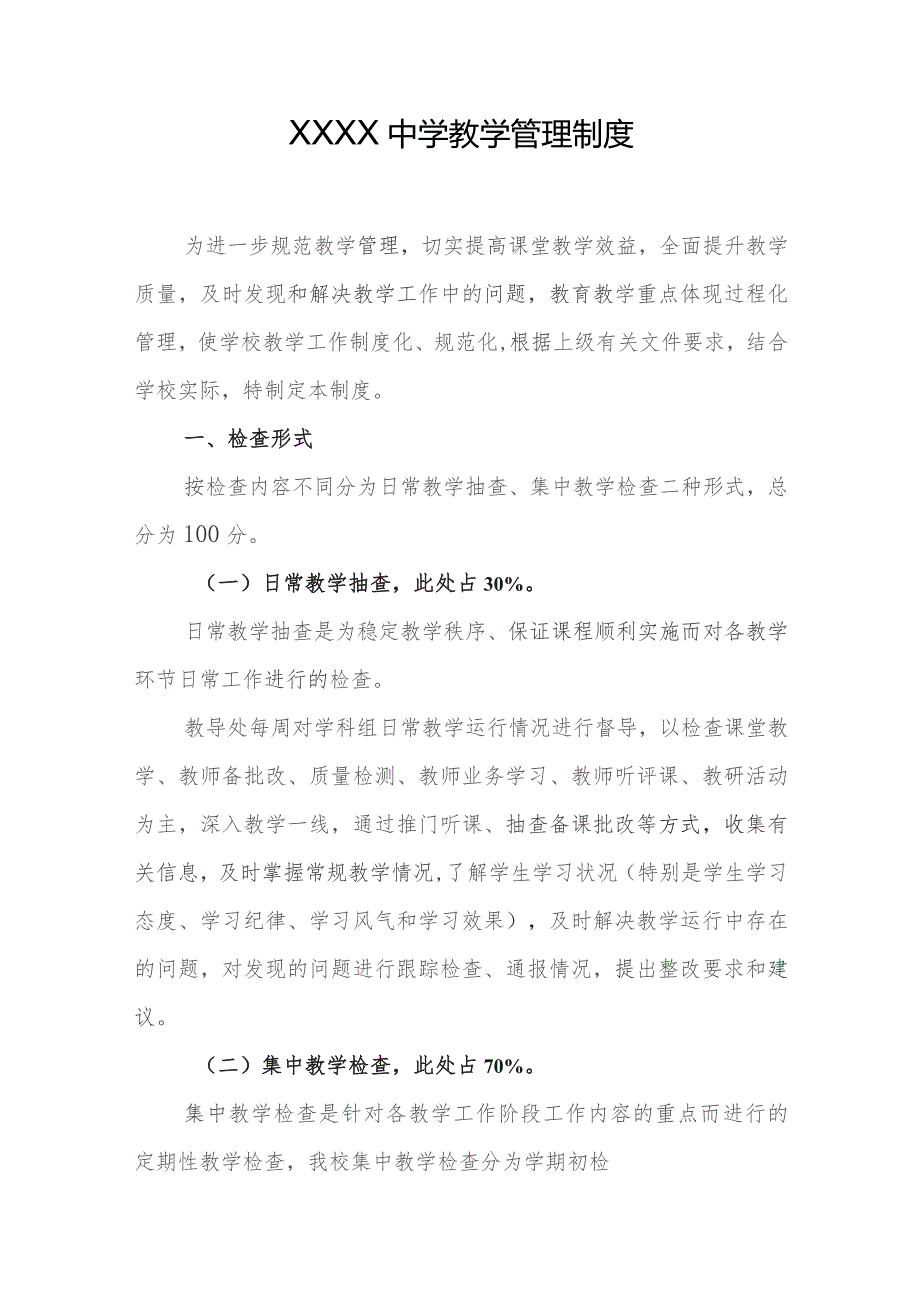 XXXX中学教学管理制度
为进一步规范教学管理，切实提高课堂教学效益，全面提升教学
质量，及时发现和解决教学工作中的问题，教育教学重点体现过程化
管理，使学校教学工作制度化、规范化,根据上级有关文件要求，结合
学校实际，特制定本制度。
一、检查形式
按检查内容不同分为日常教学抽查、集中教学检查二种形式，总
分为100分。
（一）日常教学抽查，此处占30%。
日常教学抽查是为稳定教学秩序、保证课程顺利实施而对各教学
环节日常工作进行的检查。
教导处每周对学科组日常教学运行情况进行督导，以检查课堂教
学、教师备批改、质量检测、教师业务学习、教师听评课、教研活动
为主，深入教学一线，通过推门听课、抽查备课批改等方式，收集有
关信息，及时掌握常规教学情况,了解学生学习状况（特别是学生学习
态度、学习纪律、学习风气和学习效果），及时解决教学运行中存在
的问题，对发现的问题进行跟踪检查、通报情况，提出整改要求和建
议。
（二）集中教学检查，此处占70%。
集中教学检查是针对各教学工作阶段工作内容的重点而进行的
定期性教学检查，我校集中教学检查分为学期初检